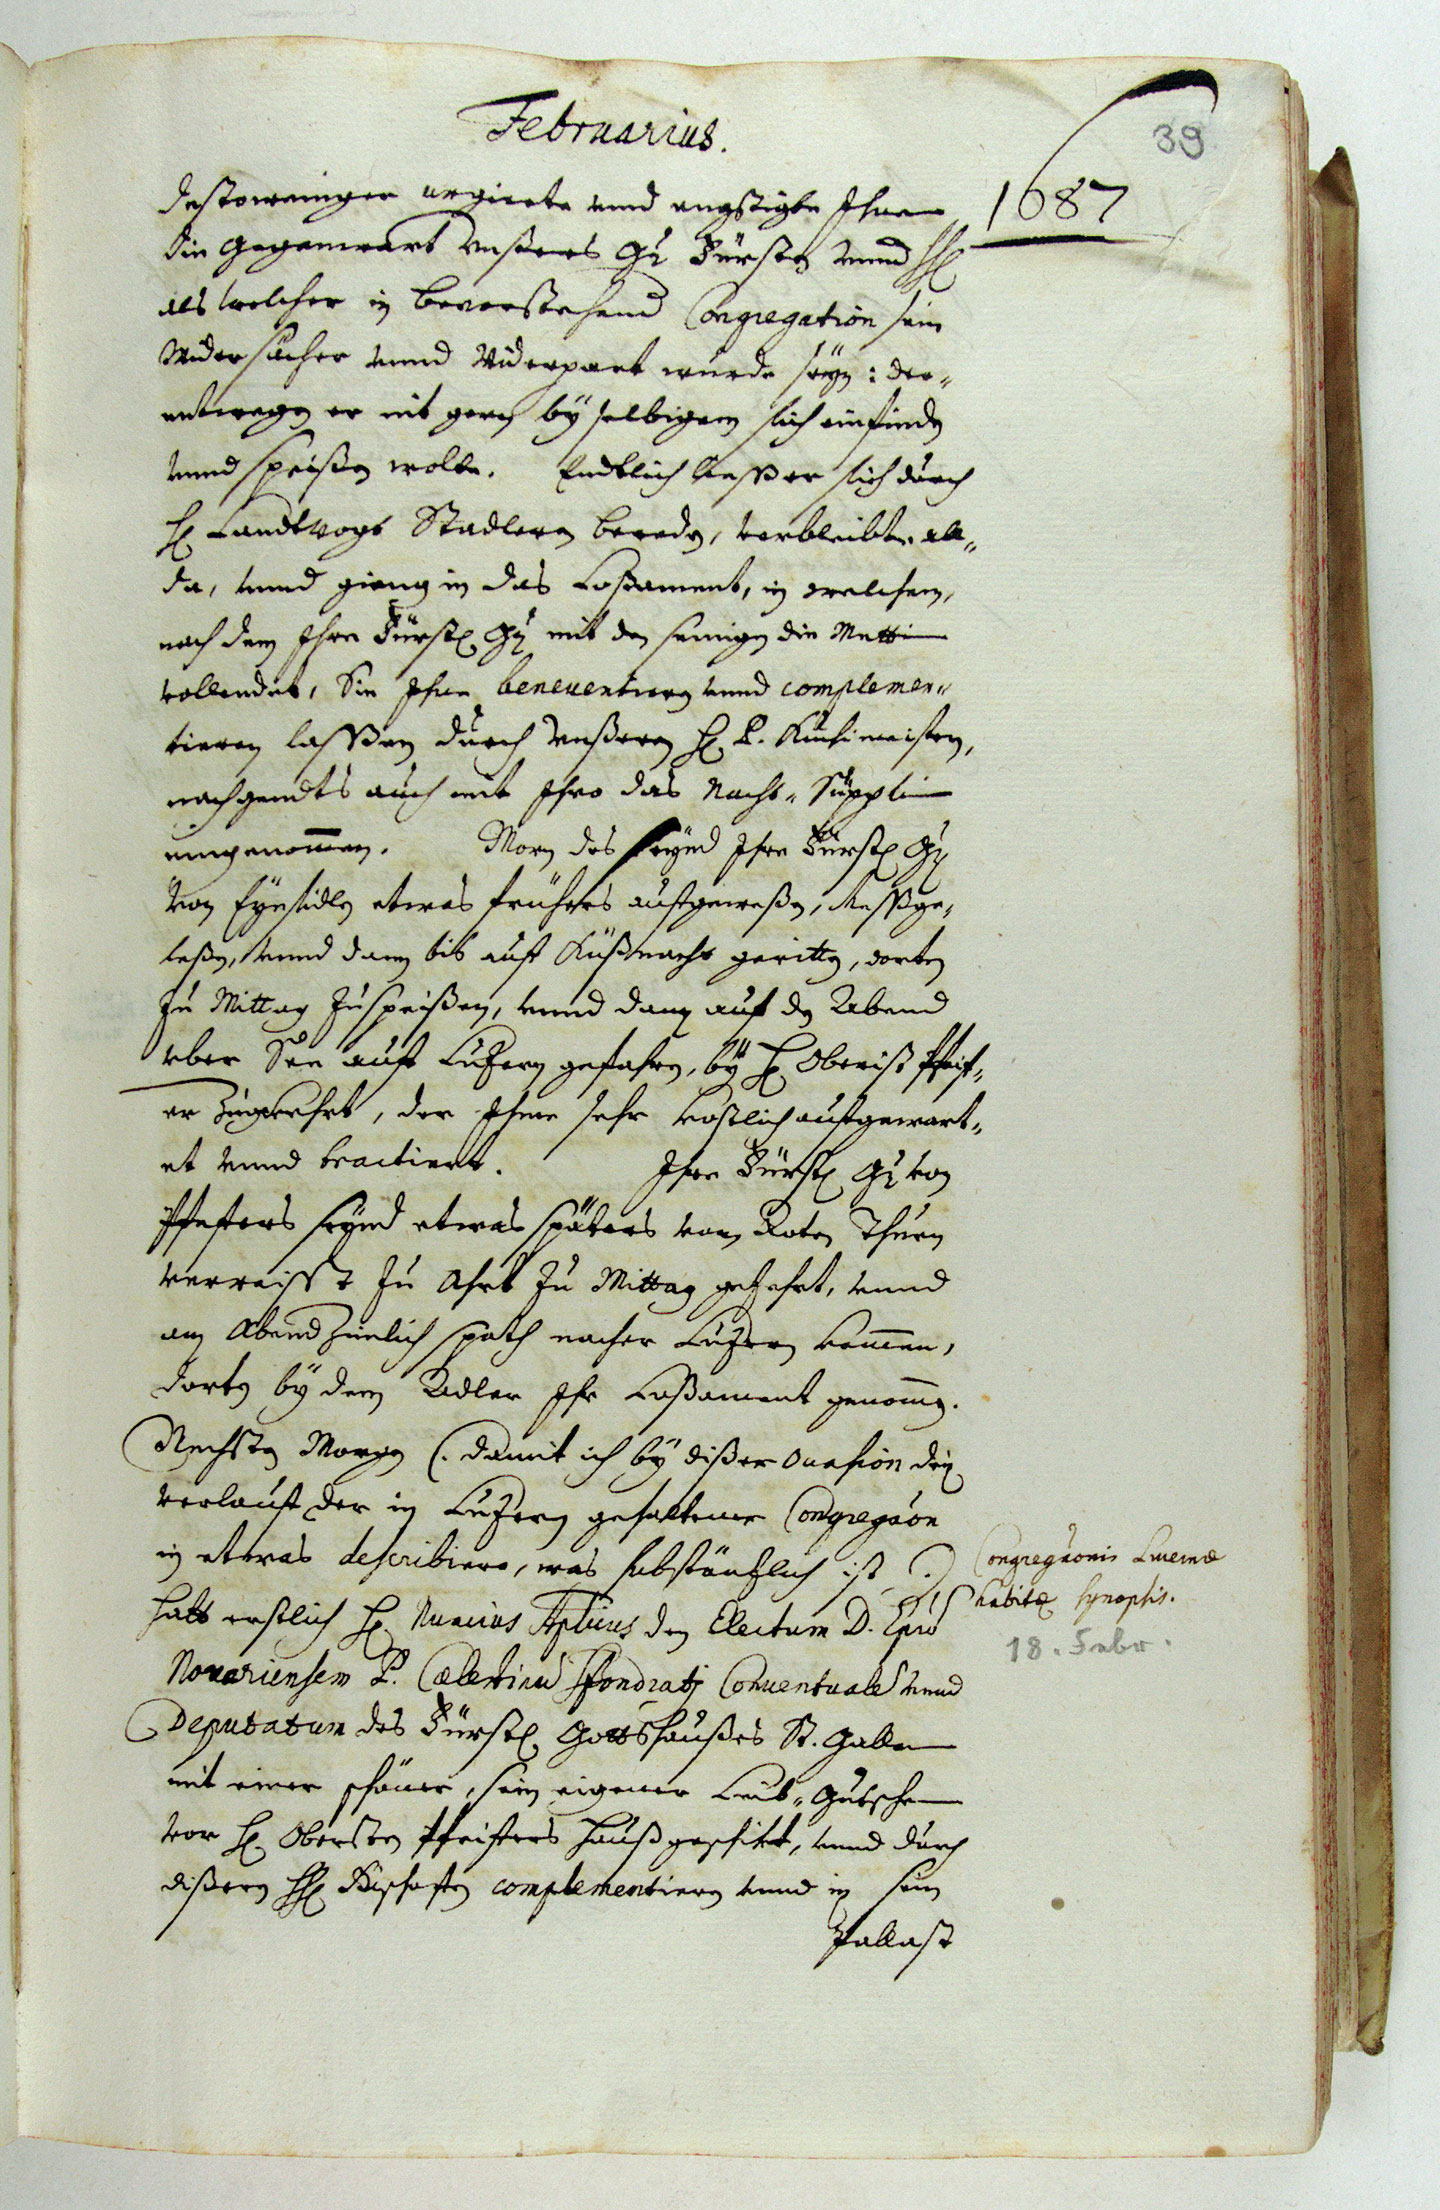 Februarius.
39
1687
destoweniger urgierte unnd engstigte Ihnen
die Gegenwart unsers Gn. Fürsten unnd HH
als welcher in bevorstehend Congregation sein
Widersächer unnd Widerpart wurde seyn: der„
entwegen er nit gern bÿ selbigem sich einfinden
unnd speißen wolte. Endtlich liess er sich durch
H. Landtvogt Stadlern bereden, verbleibte all„
da, unnd gieng in das Losament, in welchem,
nach dem Ihre Fürstl. Gn. mit den seinigen die Mettin
vollendet, Sie Ihne beneventieren unnd complemen„
tieren lassen durch unßeren H. P. Kuchimeistern,
nachgendts auch mit Ihro das Nacht„ Süpplin
eingenommen. Morn des seynd Ihre Fürstl. Gn.
von Eÿnsidlen etwas frühers aufgeweßen, Messge„
leßen, unnd dann bis auf Küßnacht geritten, dorten
zu Mittag zuspeißen, unnd dann auf den Abend
uber See auf Luzern gefahren, bÿ H. Oberist Pfeif„
er zugekehrt, der Ihme sehr kostlich aufgewart„
et unnd tractiert. Ihre Fürstl. Gn. von
Pfefers seynd etwas späters vom Roten Thurn
verreisst zu Ahrt zu Mittag gezehrt, unnd
am Abend zimlich spath nacher Luzern kommen,
dorten bÿ dem Adler Ihr Losament genommen.
Nechsten Morgen (. damit ich bÿ dißer occasion den
verlauf der in Luzern gehaltener Congregaon
in etwas describiere, was substäntzlich ist .)
hatt erstlich H. Nuncius Aplicus den Electum D. Epum
Novariensem P. Cælestinum Sfondratj Conventualem unnd
Deputatum des Fürstl. Gottshaußes St. Gallen
mit einer schöner, sein eigener Leib„ Gutschen
vor H. Obersten Pfeifers Hauß geschikt, unnd durch
dißeren HH. complementieren unnd in sein
Pallast
Congregaonis Lucernæ
habitæ synopsis.
18. Febr.